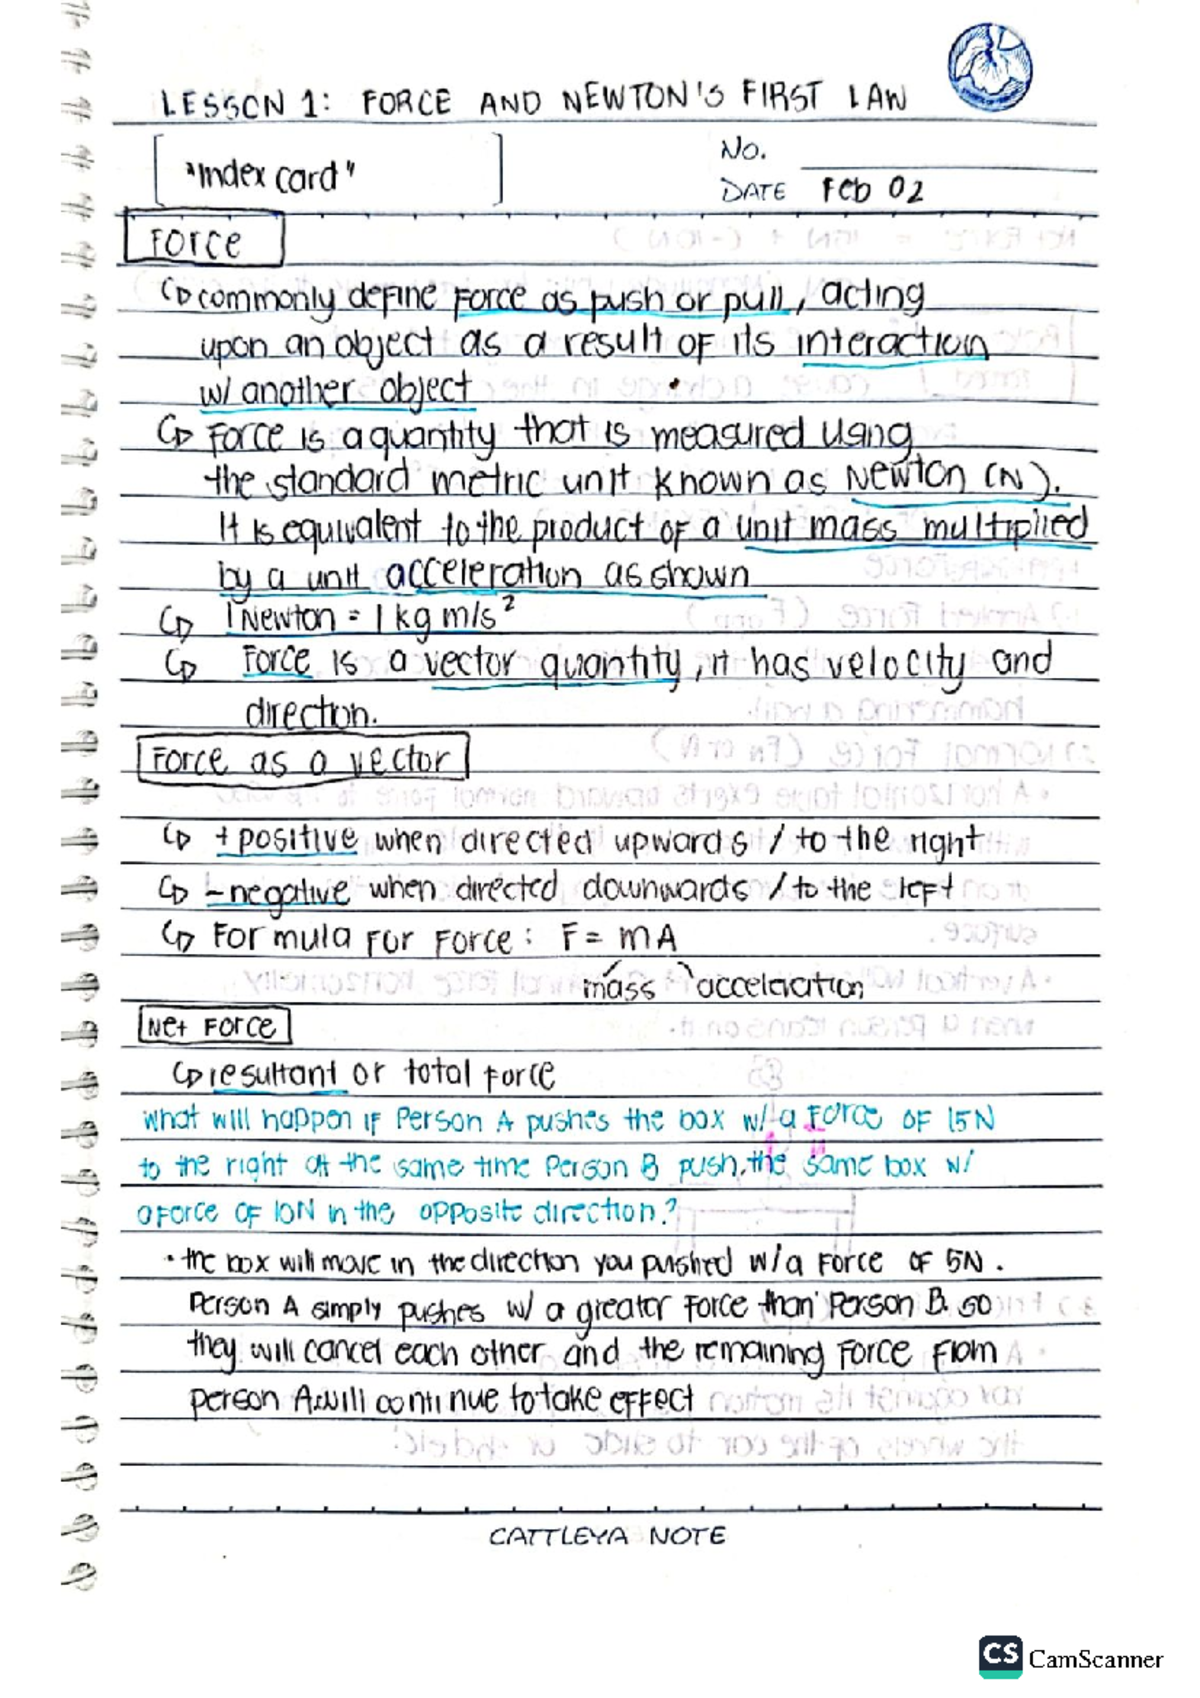 LESSON 1: FORCE AND NEWTON'S FIRST LAW
"Index card"
No.
DATE Feb 02
Force
commonly define Force as push or pull, acting
upon an object as a result of its interaction
w/ another object
Force is a quantity that is measured using
the standard metric unit known as Newton (N).
It is equivalent to the product of a unit mass multiplied
by a unit acceleration as shown
1 Newton = 1 kg m/s²
Force is a vector quantity, it has velocity and
direction.
Force as a vector
+ positive when directed upwards / to the right
- negative when directed downwards / to the left
Formula For Force: F = mA
mass acceleration
Net Force
resultant or total Force
What will happen if Person A pushes the box w/ a Force of 15N
to the right at the same time Person B push the same box w/
a force of 10N in the opposite direction?
• the box will move in the direction you pushed w/ a Force of 5N.
Person A simply pushes w/ a greater Force than Person B. so
they will cancel each other and the remaining Force From
person A will continue to take effect
CATTLEYA NOTE
CS CamScanner